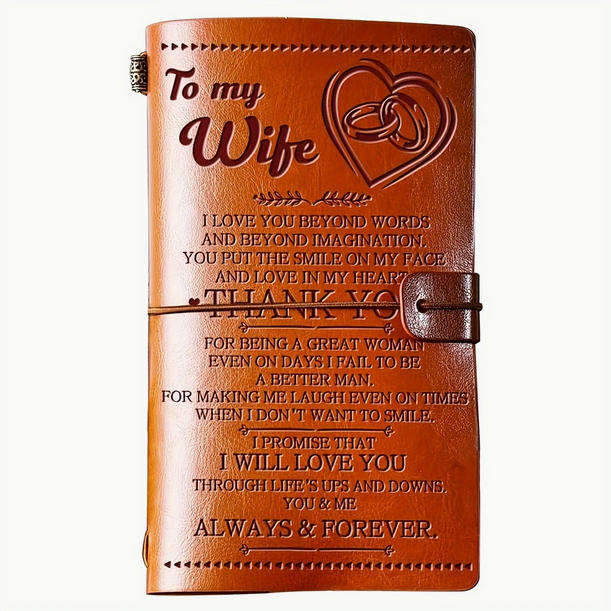 To my
Wife
I LOVE YOU BEYOND WORDS
AND BEYOND IMAGINATION.
YOU PUT THE SMILE ON MY FACE
AND LOVE IN MY HEART
THANK YO
FOR BEING A GREAT WOMAN
EVEN ON DAYS I FAIL TO BE
A BETTER MAN.
FOR MAKING ME LAUGH EVEN ON TIMES
WHEN I DON'T WANT TO SMILE.
I PROMISE THAT
I WILL LOVE YOU
THROUGH LIFE'S UPS AND DOWNS.
YOU & ME
ALWAYS & FOREVER.